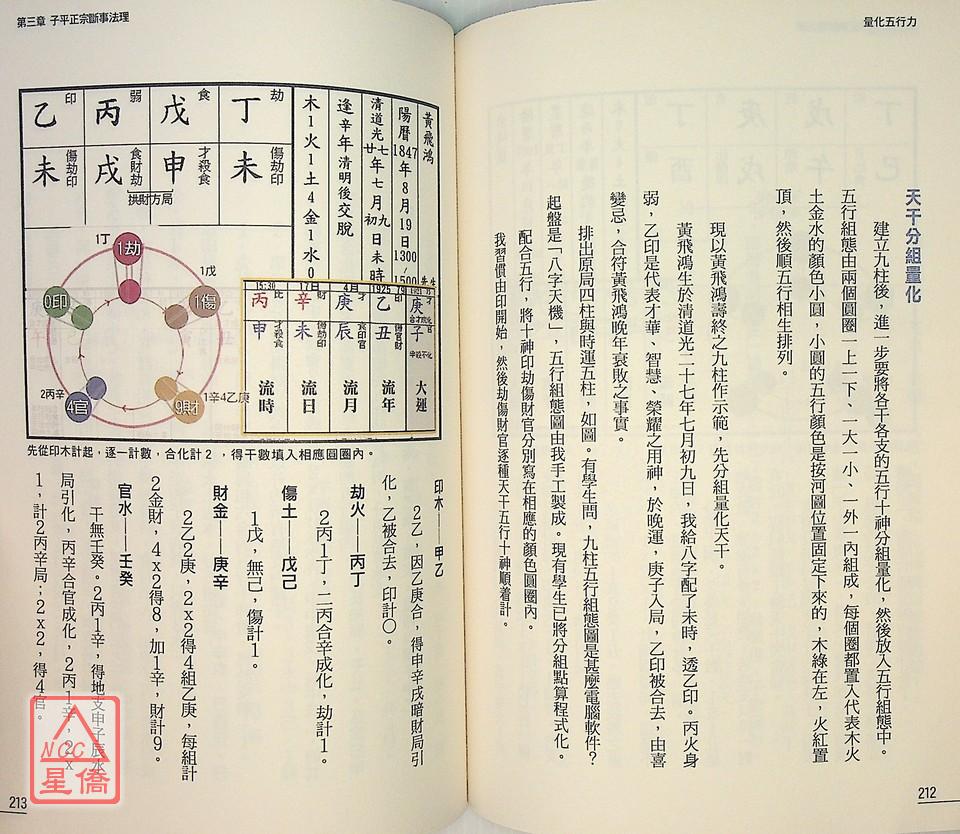 量化五行力
天干分組量化
建立九柱後，進一步要將各干各支的五行十神分組量化，然後放入五行組態中。
五行組態由兩個圓圈一上一下、一大一小、一外一內組成，每個圈都置入代表木火
土金水的顏色小圓，小圓的五行顏色是按河圖位置固定下來的，木綠在左，火紅置
頂，然後順五行相生排列。
現以黃飛鴻壽終之九柱作示範，先分組量化天干。
黃飛鴻生於清道光二十七年七月初九日，我給八字配了未時，透乙印。丙火身
弱，乙印是代表才華、智慧、榮耀之用神，於晚運，庚子入局，乙印被合去，由喜
變忌，合符黃飛鴻晚年衰敗之事實。
排出原局四柱與時運五柱，如圖。有學生問，九柱五行組態圖是甚麼電腦軟件？
起盤是「八字天機」，五行組態圖由我手工製成。現有學生已將分組點算程式化。
配合五行，將十神印劫傷財官分別寫在相應的顏色圓圈內。
我習慣由印開始，然後劫傷財官逐種天干五行十神順着計。
212
第三章 子平正宗斷事法理
黃飛鴻 先生
陽曆1847年8月19日1300/1500
清道光廿七年七月初九日未時
逢辛年清明後交脫
木1火1土4金1水0
劫 食 弱 印
丁 戊 丙 乙
未 申 戌 未
傷劫印 才殺食 食財劫 傷劫印
拱財方局
15:30 17日 4月 1925 79
丙 比 辛 財 庚 才 乙 印 庚 才
申 才殺食 未 傷劫印 辰 食印官 丑 傷官財 子 官
流時 流日 流月 流年 大運
1丁
1劫
1戊
1傷
0印
2丙辛
4官
9財
1辛4乙庚
先從印木計起，逐一計數，合化計2，得干數填入相應圓圈內。
印木——甲乙
2乙，因乙庚合，得申辛戌暗財局引
化，乙被合去，印計〇。
劫火——丙丁
2丙1丁，二丙合辛成化，劫計1。
傷土——戊己
1戊，無己，傷計1。
財金——庚辛
2乙2庚，2x2得4組乙庚，每組計
2金財，4x2得8，加1辛，財計9。
官水——壬癸
干無壬癸。2丙1辛，得地支申子辰水
局引化，丙辛合官成化，2丙1辛，2x
1，計2丙辛局；2x2，得4官。
NCC
星僑
213